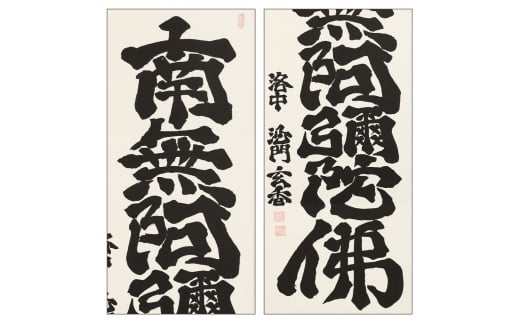 南無阿彌
無阿彌陀佛
洛中 沙門 玄香